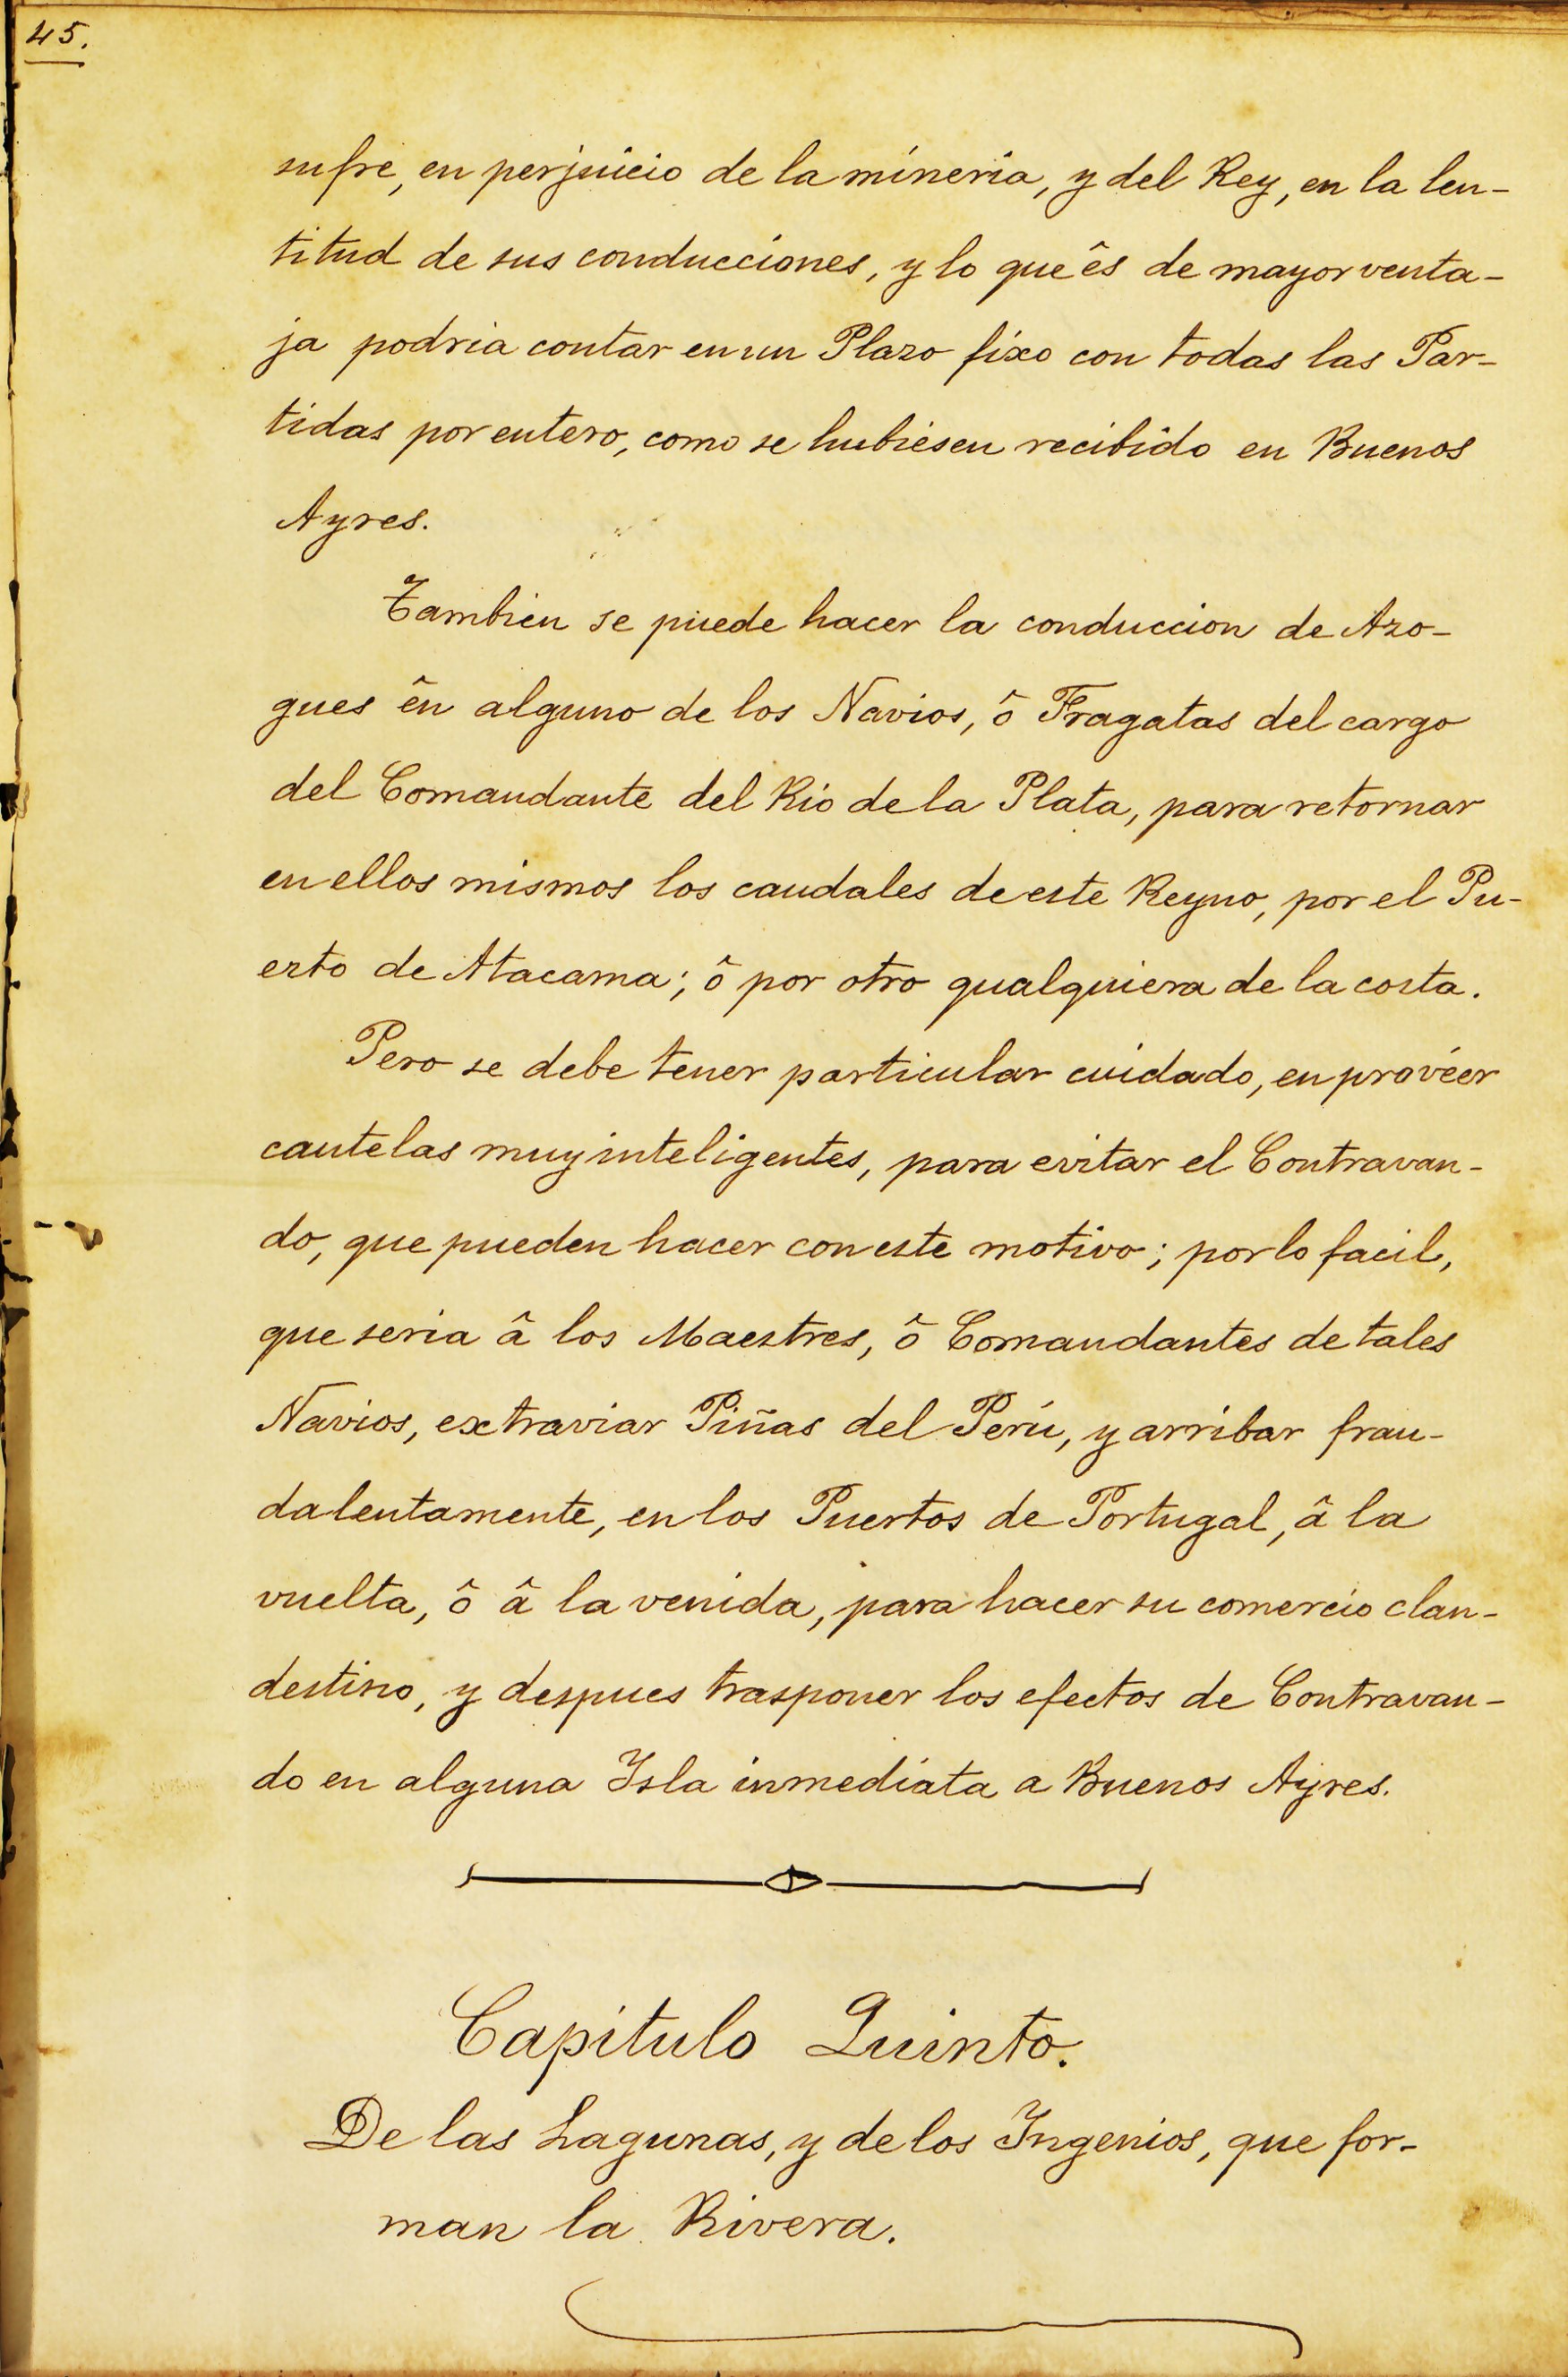 45.
sufre, en perjuicio de la mineria, y del Rey, en la len-
titud de sus conducciones, y lo que ês de mayor venta-
ja podria contar en un Plazo fixo con todas las Par-
tidas por entero, como se hubiesen recibido en Buenos
Ayres.
Tambien se puede hacer la conduccion de Azo-
gues ên alguno de los Navios, ô Fragatas del cargo
del Comandante del Rio de la Plata, para retornar
en ellos mismos los caudales de este Reyno, por el Pu-
erto de Atacama; ô por otro qualquiera de la costa.
Pero se debe tener particular cuidado, en provéer
cautelas muy inteligentes, para evitar el Contravan-
do, que pueden hacer con este motivo; por lo facil,
que seria â los Maestres, ô Comandantes de tales
Navios, extraviar Piñas del Perú, y arribar frau-
dalentamente, en los Puertos de Portugal, â la
vuelta, ô â la venida, para hacer su comercio clan-
destino, y despues trasponer los efectos de Contravan-
do en alguna Isla inmediata a Buenos Ayres.
Capitulo Quinto.
De las Lagunas, y de los Ingenios, que for-
man la Rivera.